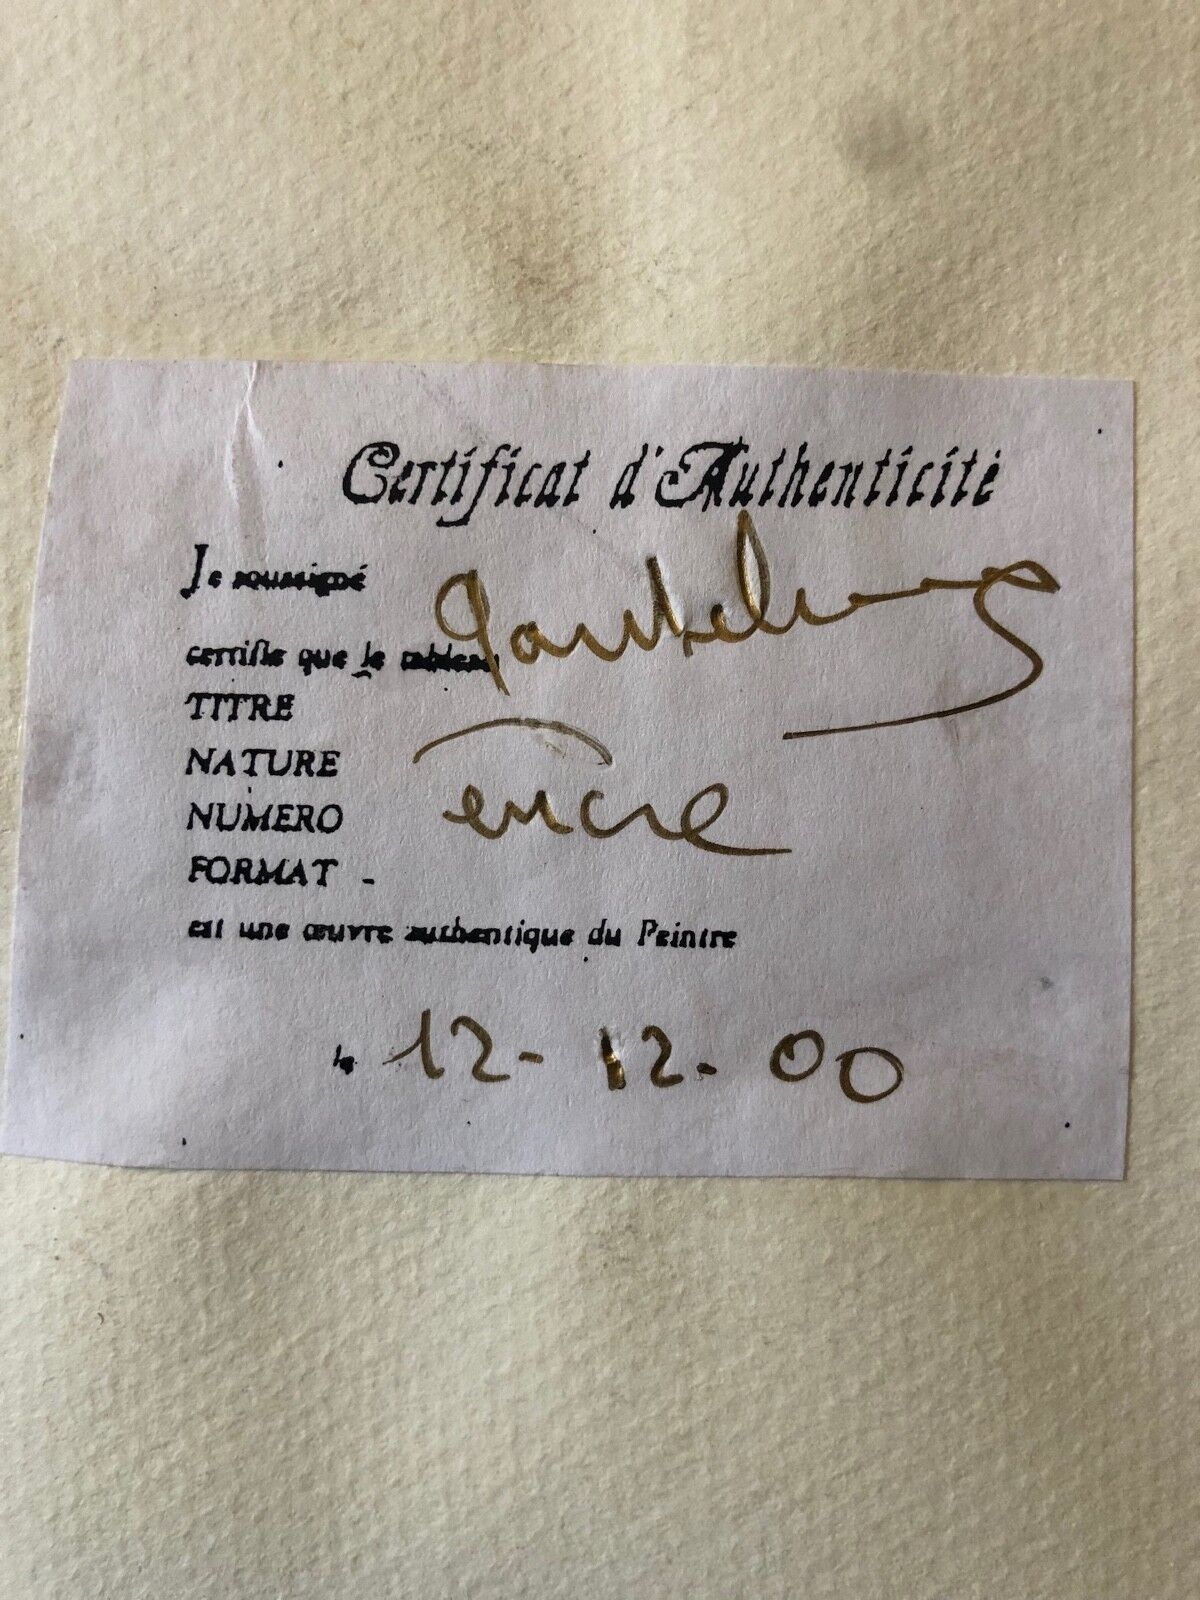 Certificat d'Authenticité
Je soussigné
certifie que le tableau
TITRE
NATURE
encre
NUMERO
FORMAT -
est une œuvre authentique du Peintre
le 12-12.00